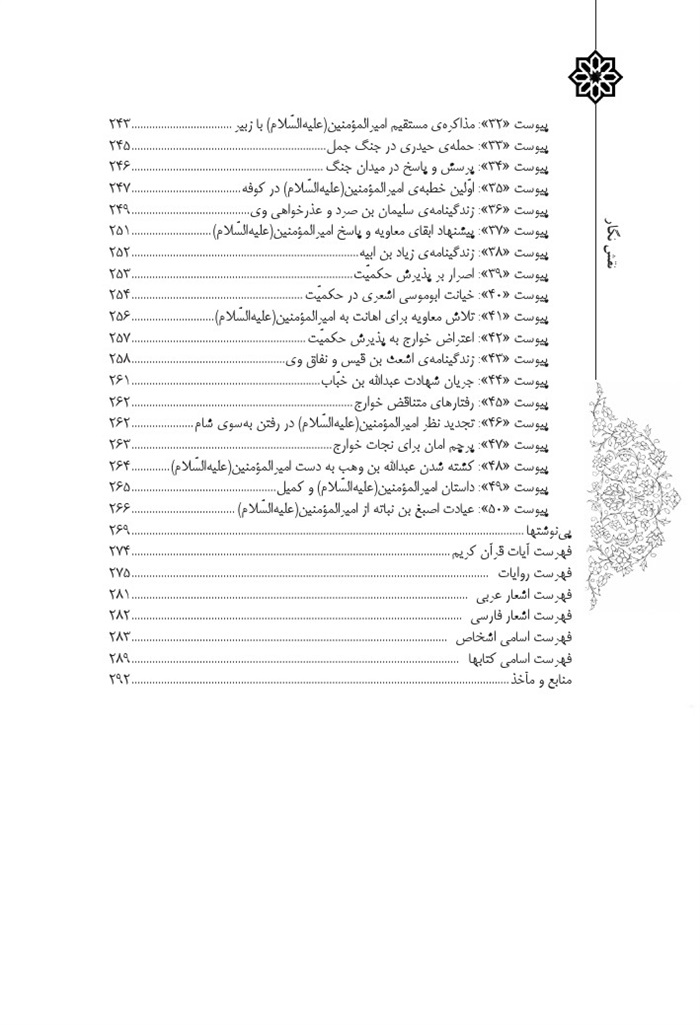 پیوست «۳۲»: مذاکره‌ی مستقیم امیرالمؤمنین(علیه‌السّلام) با زبیر ..................................۲۴۳
پیوست «۳۳»: حمله‌ی حیدری در جنگ جمل..................................۲۴۵
پیوست «۳۴»: پرسش و پاسخ در میدان جنگ ..................................۲۴۶
پیوست «۳۵»: اوّلین خطبه‌ی امیرالمؤمنین(علیه‌السّلام) در کوفه..................................۲۴۷
پیوست «۳۶»: زندگینامه‌ی سلیمان بن صرد و عذرخواهی وی..................................۲۴۹
پیوست «۳۷»: پیشنهاد ابقای معاویه و پاسخ امیرالمؤمنین(علیه‌السّلام)..................................۲۵۱
پیوست «۳۸»: زندگینامه‌ی زیاد بن ابیه..................................۲۵۲
پیوست «۳۹»: اصرار بر پذیرش حکمیّت..................................۲۵۳
پیوست «۴۰»: خیانت ابوموسی اشعری در حکمیّت ..................................۲۵۴
پیوست «۴۱»: تلاش معاویه برای اهانت به امیرالمؤمنین(علیه‌السّلام)..................................۲۵۶
پیوست «۴۲»: اعتراض خوارج به پذیرش حکمیّت ..................................۲۵۷
پیوست «۴۳»: زندگینامه‌ی اشعث بن قیس و نفاق وی..................................۲۵۸
پیوست «۴۴»: جریان شهادت عبدالله بن خبّاب..................................۲۶۱
پیوست «۴۵»: رفتارهای متناقض خوارج..................................۲۶۲
پیوست «۴۶»: تجدید نظر امیرالمؤمنین(علیه‌السّلام) در رفتن به‌سوی شام ..................................۲۶۲
پیوست «۴۷»: پرچم امان برای نجات خوارج..................................۲۶۳
پیوست «۴۸»: کشته شدن عبدالله بن وهب به دست امیرالمؤمنین(علیه‌السّلام)..................................۲۶۴
پیوست «۴۹»: داستان امیرالمؤمنین(علیه‌السّلام) و کمیل..................................۲۶۵
پیوست «۵۰»: عیادت اصبغ بن نباته از امیرالمؤمنین(علیه‌السّلام) ..................................۲۶۶
پی‌نوشتها..................................۲۶۹
فهرست آیات قرآن کریم..................................۲۷۴
فهرست روایات ..................................۲۷۵
فهرست اشعار عربی ..................................۲۸۱
فهرست اشعار فارسی ..................................۲۸۲
فهرست اسامی اشخاص ..................................۲۸۳
فهرست اسامی کتابها ..................................۲۸۹
منابع و مآخذ..................................۲۹۲
نقش نگار